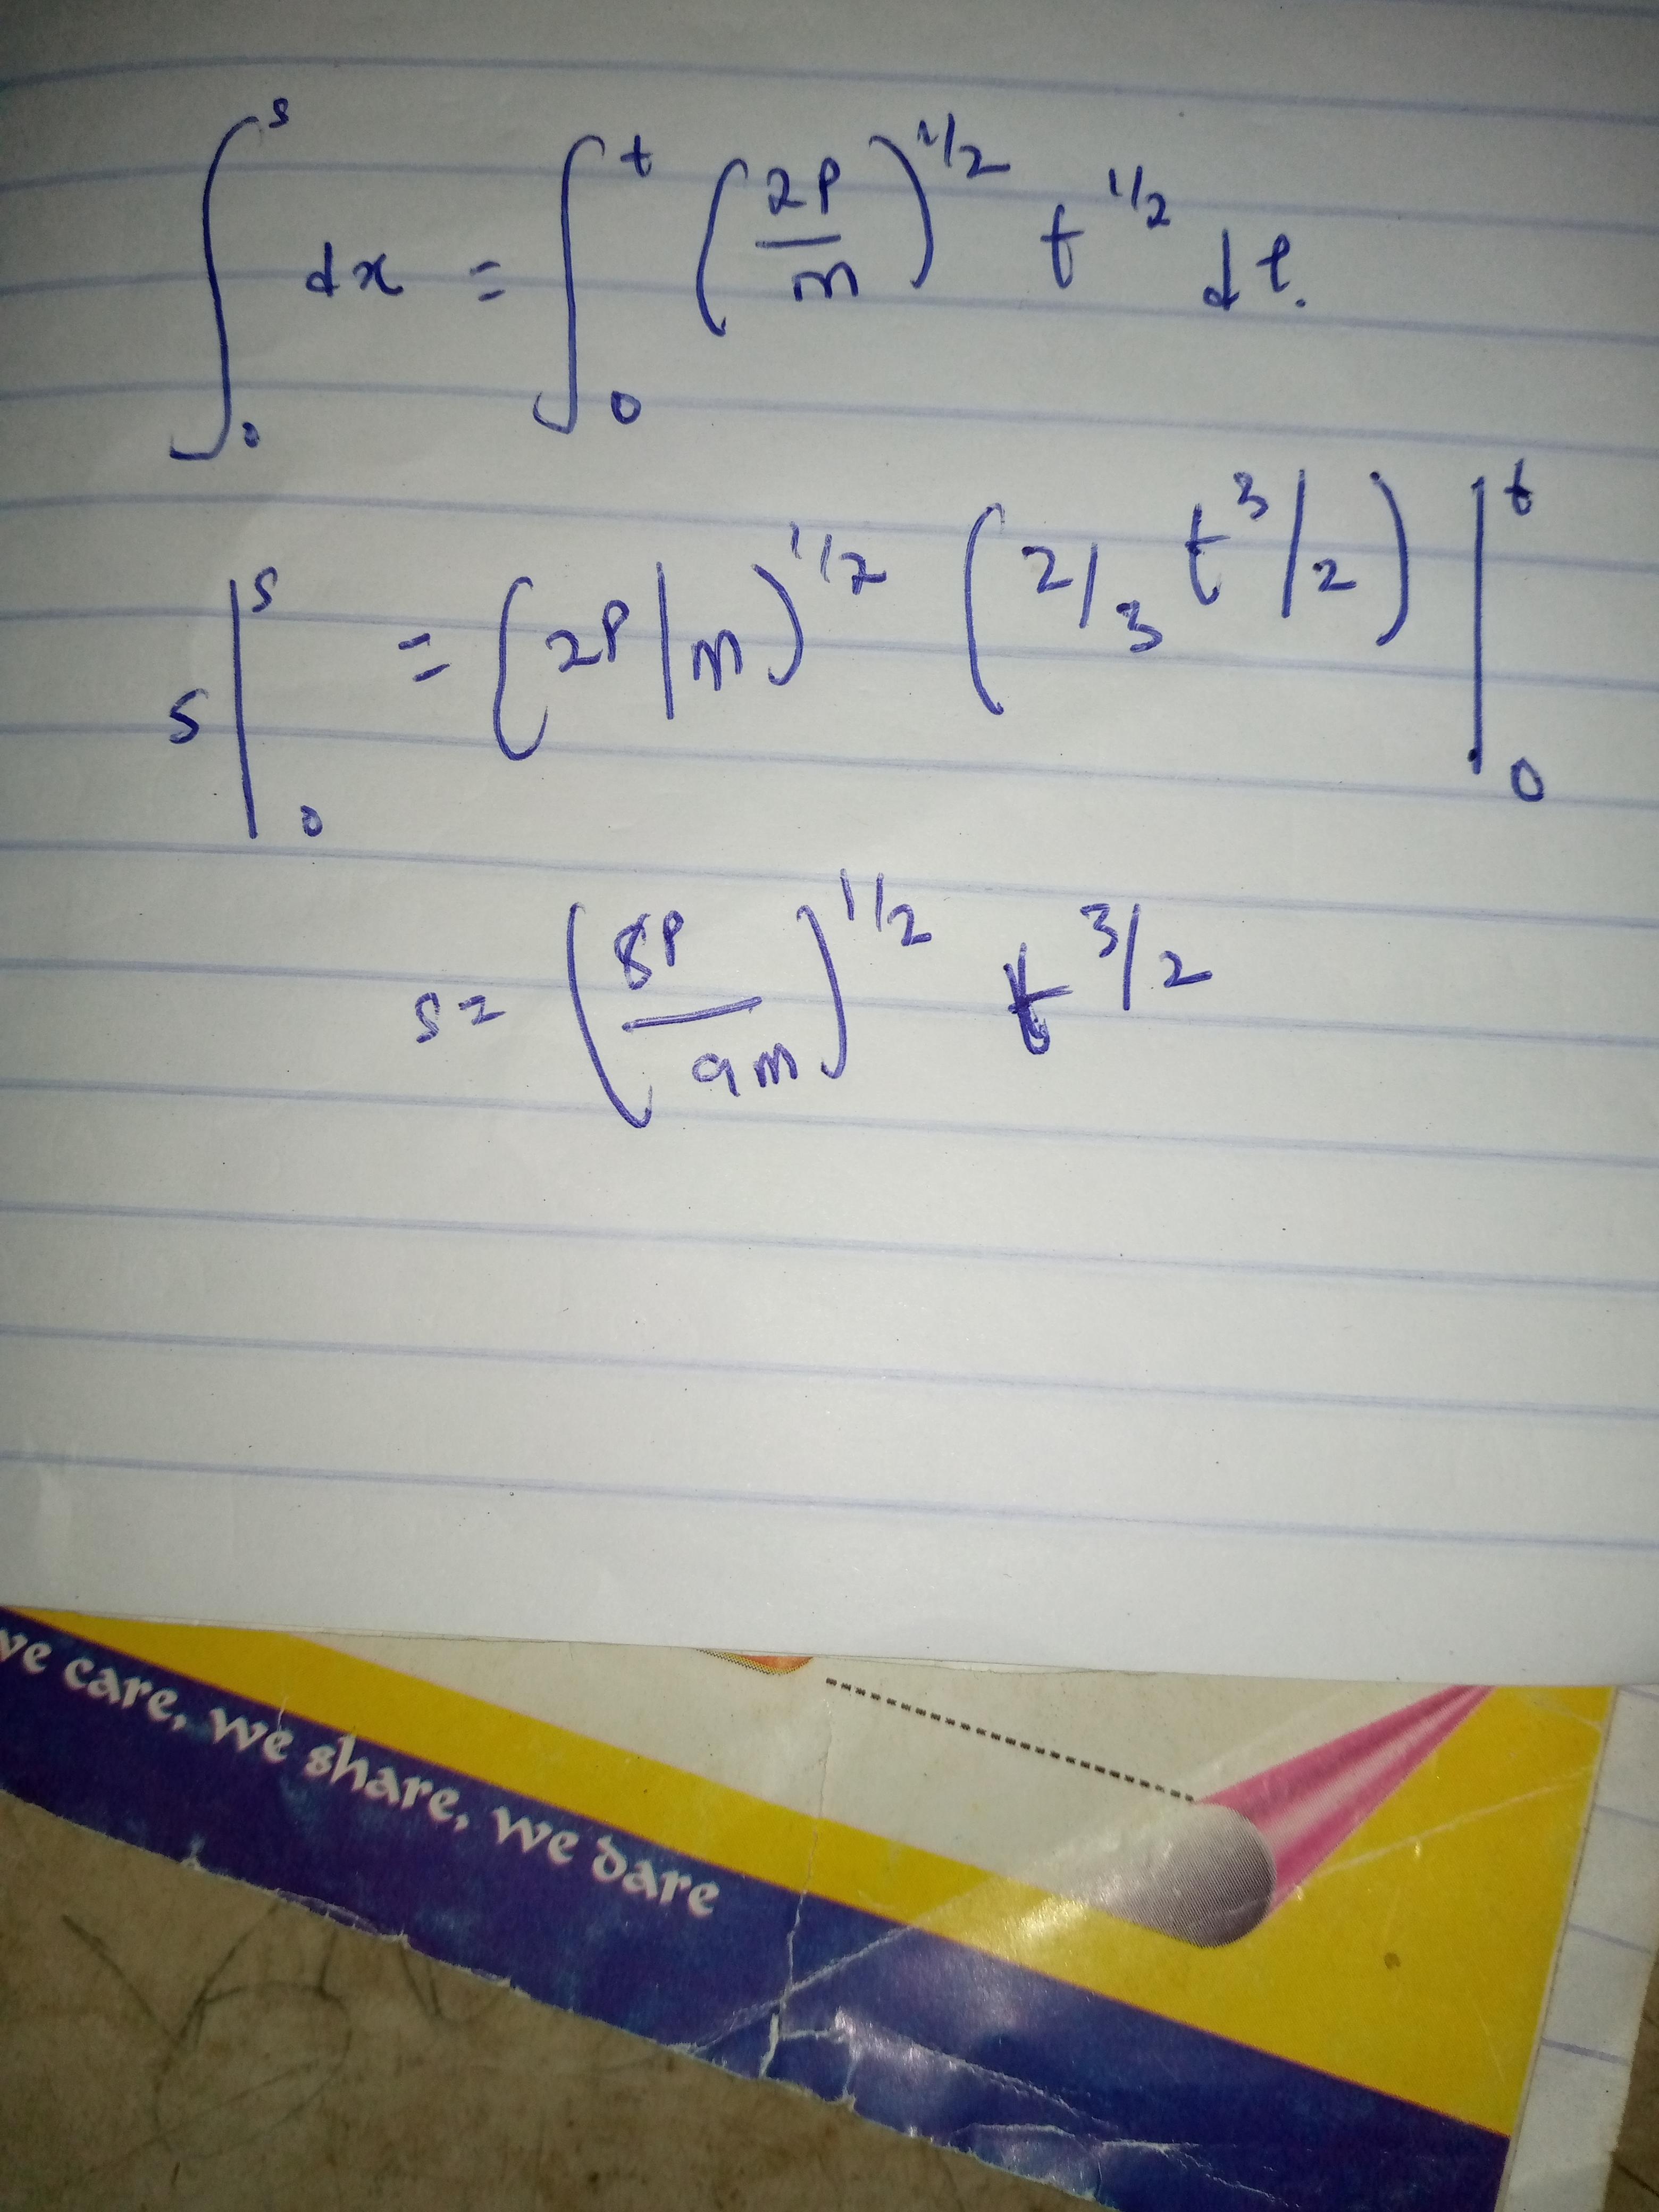 ∫₀ˢ dx = ∫₀ᵗ (2P/m)^1/2 t^1/2 dt.
s|₀ˢ = (2P/m)^1/2 (2/3 t^3/2)|₀ᵗ
s = (8P/9m)^1/2 t^3/2
we care, we share, we dare